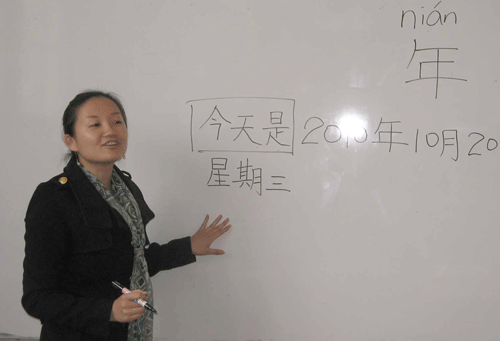 nián
年
今天是 2010年10月20
星期三